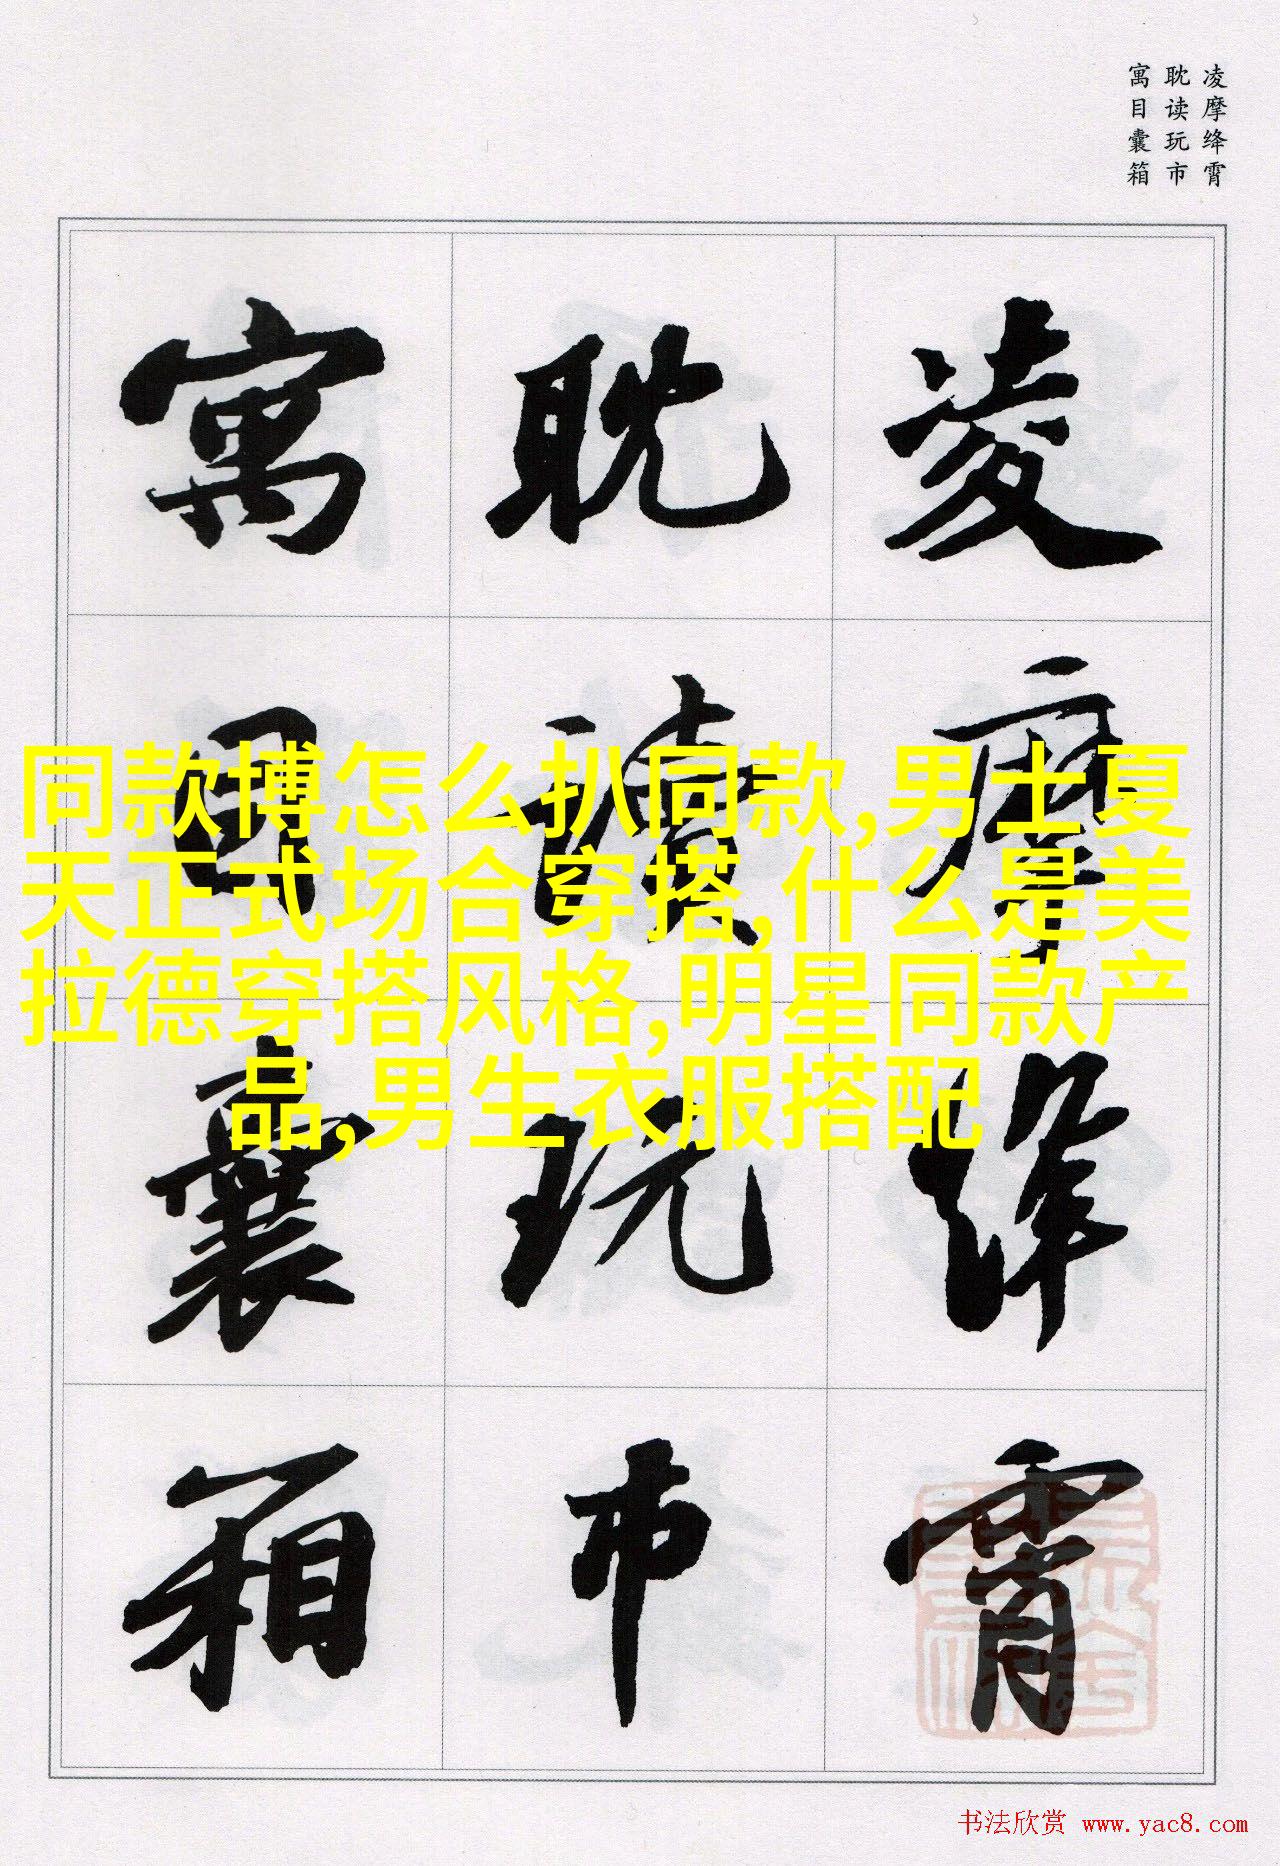 凌摩绛霄
耽读玩市
寓目囊箱
凌摩绛霄
耽读玩市
寓目囊箱
同款博怎么扒同款,男士夏
天正式场合穿搭,什么是美
拉德穿搭风格,明星同款产
品,男生衣服搭配
书法欣赏 www.yac8.com